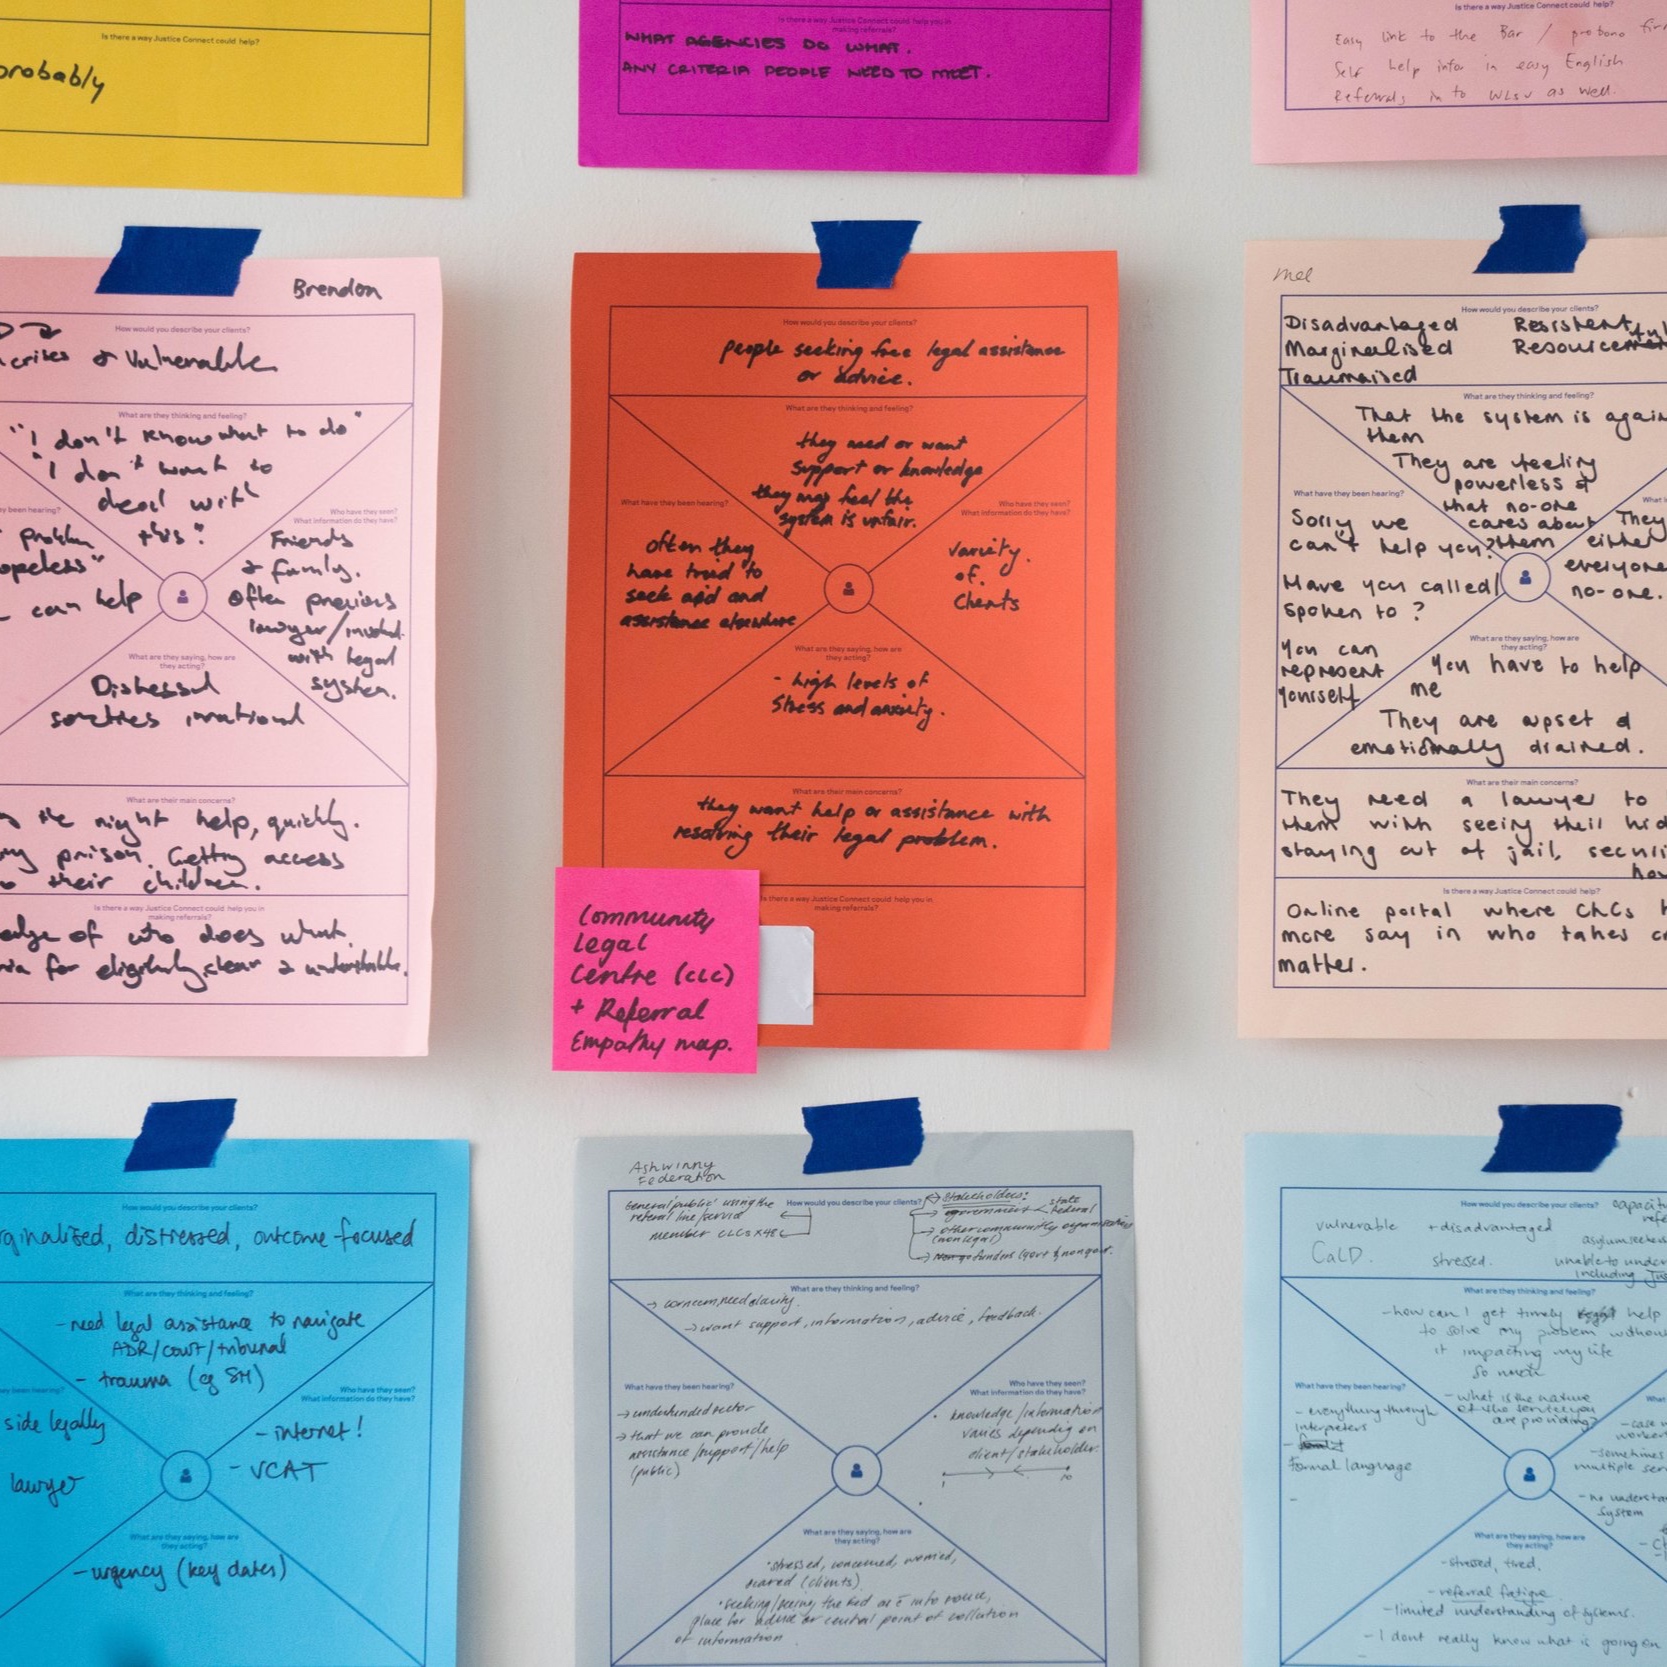 Is there a way Justice Connect could help?
probably
Is there a way Justice Connect could help you in
making referrals?
WHAT AGENCIES DO WHAT.
ANY CRITERIA PEOPLE NEED TO MEET.
Is there a way Justice Connect could help?
Easy link to the Bar / probono
Self help info in easy English
Referrals in to WLSV as well.
Brendon
How would you describe your clients?
crises & Vulnerable
What are they thinking and feeling?
"I don't know what to do"
"I don't want to
deal with
this."
hey been hearing?
problem
opeless"
can help
Who have they seen?
What information do they have?
Friends
& family.
Often previous
lawyer/involved
with legal
system.
What are they saying, how are
they acting?
Distressed
sometimes irrational
What are their main concerns?
the night help, quickly.
prison. Getting access
their children.
Is there a way Justice Connect could help you in
making referrals?
of who does what.
for eligibility, clear & understandable.
How would you describe your clients?
people seeking free legal assistance
or advice.
What are they thinking and feeling?
they need or want
support or knowledge
they may feel the
system is unfair.
What have they been hearing?
often they
have tried to
seek aid and
assistance elsewhere
Who have they seen?
What information do they have?
variety
of
clients
What are they saying, how are
they acting?
- high levels of
stress and anxiety.
What are their main concerns?
they want help or assistance with
resolving their legal problem.
Is there a way Justice Connect could help you in
making referrals?
Community
Legal
Centre (CLC)
+ Referral
Empathy map.
Mel
How would you describe your clients?
Disadvantaged
Marginalised
Traumaised
Resistent
What are they thinking and feeling?
That the system is again
them
They are feeling
powerless &
that no-one
cares about
them
What have they been hearing?
Sorry we
can't help you?
Have you called/
spoken to?
You can
represent
yourself
They
either
everyone
no-one.
What are they saying, how are
they acting?
You have to help
me
They are upset &
emotionally drained.
What are their main concerns?
They need a lawyer to
them with seeing their kid
staying out of jail, securi
Is there a way Justice Connect could help?
Online portal where CLCs h
more say in who takes
matter.
How would you describe your clients?
rginalised, distressed, outcome focused
What are they thinking and feeling?
- need legal assistance to navigate
ADR/court/tribunal
- trauma (eg SH)
hey been hearing?
side legally
lawyer
Who have they seen?
What information do they have?
- internet!
- VCAT
What are they saying, how are
they acting?
- urgency (key dates)
Ashwinny
Federation
How would you describe your clients?
General 'public' using the
referral line/service
member CLCs x48
Stakeholders:
government
state
federal
other community organisations
(non legal)
funders (govt & nongovt.
What are they thinking and feeling?
→ concern, need clarity.
→ want support, information, advice, feedback.
What have they been hearing?
→ underfunded sector
→ that we can provide
assistance/support/help
(public)
Who have they seen?
What information do they have?
• knowledge/information
varies depending on
client/stakeholder.
1
10
What are they saying, how are
they acting?
• stressed, concerned, worried,
scared (clients).
place for advice or central point of collation
of information
How would you describe your clients?
vulnerable
+ disadvantaged
CaLD.
stressed.
asylum seekers
unable to under
including
What are they thinking and feeling?
- how can I get timely help
to solve my problem without
it impacting my life
so much
- what is the nature
of the service you
are providing?
What have they been hearing?
- everything through
interpreters
formal language
- sometimes
multiple ser
- no understa
system
What are they saying, how are
they acting?
- stressed, tired.
- referral fatigue
- limited understanding of systems.
- I dont really know what is going on